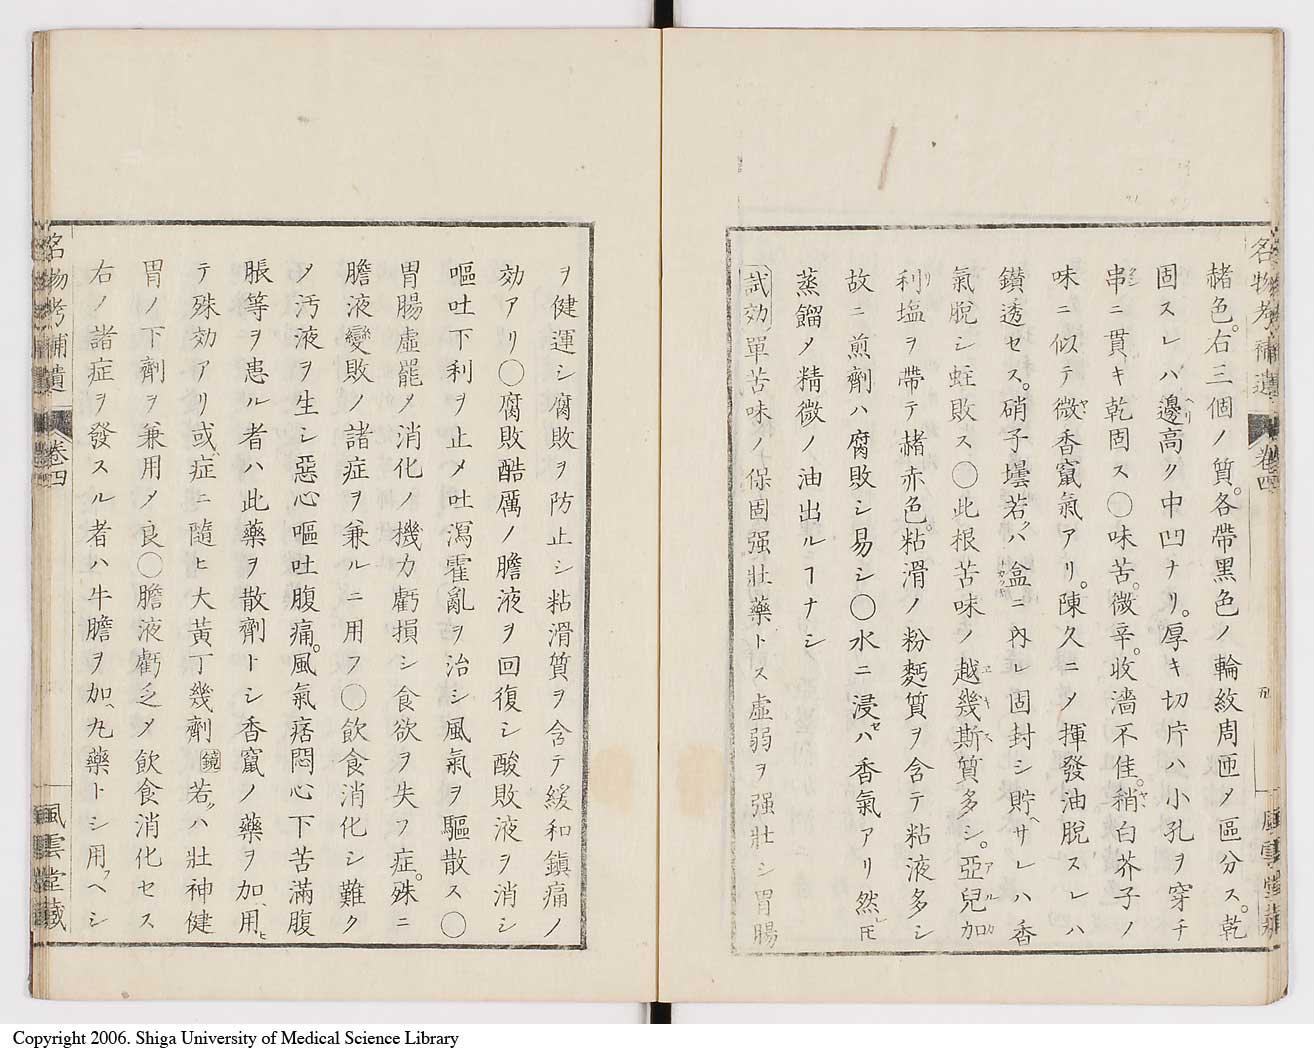 赭色。右三個ノ質。各帶黑色ノ輪紋周匝〆區分ス。乾
固スレハ邊高ク中凹ナリ。厚キ切片ハ小孔ヲ穿チ
串ニ貫キ乾固ス〇味苦。微辛。收濇不佳。稍白芥子ノ
味ニ似テ微香竄氣アリ。陳久ニ〆揮發油脫スレハ
鑽透セス。硝子壜若クハ盒ニ內レ固封シ貯ヘサレハ香
氣脫シ蛀敗ス〇此根苦味ノ越幾斯質多シ。亞兒加
利塩ヲ帶テ赭赤色。粘滑ノ粉麪質ヲ含テ粘液多シ
故ニ煎劑ハ腐敗シ易シ〇水ニ浸セハ香氣アリ然レ𪜈
蒸餾〆精微ノ油出ルヿナシ
試効 單苦味ノ保固强壯藥トス虛弱ヲ强壯シ胃腸
名物考補遺 卷四 九 風雲堂藏
ヲ健運シ腐敗ヲ防止シ粘滑質ヲ含テ緩和鎭痛ノ
効アリ〇腐敗酷厲ノ膽液ヲ回復シ酸敗液ヲ消シ
嘔吐下利ヲ止メ吐瀉霍亂ヲ治シ風氣ヲ驅散ス〇
胃腸虛罷〆消化ノ機力虧損シ食欲ヲ失フ症。殊ニ
膽液變敗ノ諸症ヲ兼ルニ用フ〇飲食消化シ難ク
ノ汚液ヲ生シ惡心嘔吐腹痛。風氣痞悶心下苦滿腹
脹等ヲ患ル者ハ此藥ヲ散劑トシ香竄ノ藥ヲ加、用ヒ
テ殊効アリ或、症ニ隨ヒ大黃丁幾劑鏡若クハ壯神健
胃ノ下劑ヲ兼用〆良〇膽液虧乏〆飲食消化セス
右ノ諸症ヲ發スル者ハ牛膽ヲ加、丸藥トシ用フヘシ
名物考補遺 卷四 風雲堂藏
Copyright 2006. Shiga University of Medical Science Library